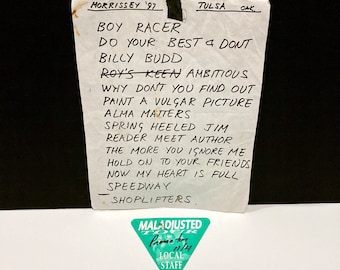 MORRISSEY '97 TULSA OAK.
BOY RACER
DO YOUR BEST & DONT
BILLY BUDD
ROY'S KEEN AMBITIOUS
WHY DON'T YOU FIND OUT
PAINT A VULGAR PICTURE
ALMA MATTERS
SPRING HEELED JIM
READER MEET AUTHOR
THE MORE YOU IGNORE ME
HOLD ON TO YOUR FRIENDS
NOW MY HEART IS FULL
SPEEDWAY
SHOPLIFTERS
MALADJUSTED
TOUR
LOCAL
STAFF